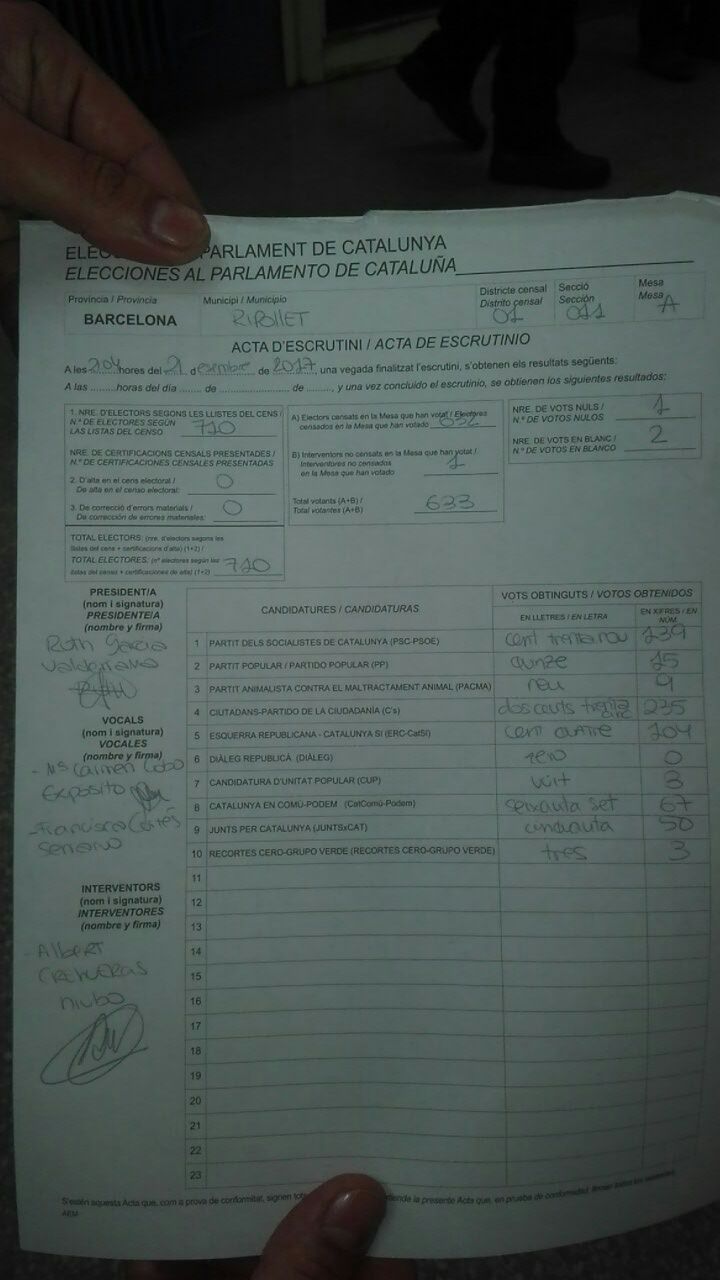 PARLAMENT DE CATALUNYA
ELECCIONES AL PARLAMENTO DE CATALUÑA
Província / Provincia
BARCELONA
Municipi / Municipio
RIPOLLET
Districte censal
Distrito censal
01
Secció
Sección
011
Mesa
Mesa
A
ACTA D'ESCRUTINI / ACTA DE ESCRUTINIO
A les hores del 21 desembre de 2017, una vegada finalitzat l'escrutini, s'obtenen els resultats següents:
A las ......... horas del día ....... de ........................ de ........, y una vez concluido el escrutinio, se obtienen los siguientes resultados:
1. NRE. D'ELECTORS SEGONS LES LLISTES DEL CENS /
N.º DE ELECTORES SEGÚN
LAS LISTAS DEL CENSO 710
NRE. DE CERTIFICACIONS CENSALS PRESENTADES /
N.º DE CERTIFICACIONES CENSALES PRESENTADAS
2. D'alta en el cens electoral /
De alta en el censo electoral: 0
3. De correcció d'errors materials /
De corrección de errores materiales: 0
TOTAL ELECTORS: (nre. d'electors segons les
llistes del cens + certificacions d'alta) (1+2) /
TOTAL ELECTORES: (nº electores según las
listas del censo + certificaciones de alta) (1+2) 710
A) Electors censats en la Mesa que han votat / Electores
censados en la Mesa que han votado 632
B) Interventors no censats en la Mesa que han votat /
Interventores no censados
en la Mesa que han votado 1
Total votants (A+B) /
Total votantes (A+B) 633
NRE. DE VOTS NULS /
N.º DE VOTOS NULOS 1
NRE. DE VOTS EN BLANC /
N.º DE VOTOS EN BLANCO 2
PRESIDENT/A
(nom i signatura)
PRESIDENTE/A
(nombre y firma)
Ruth Garcia
Valderrama
VOCALS
(nom i signatura)
VOCALES
(nombre y firma)
- Mª Carmen Cobo
Exposito
- Francisca Cortés
Serrano
INTERVENTORS
(nom i signatura)
INTERVENTORES
(nombre y firma)
- Albert
CREHUERAS
niubo
CANDIDATURES / CANDIDATURAS
VOTS OBTINGUTS / VOTOS OBTENIDOS
EN LLETRES / EN LETRA
EN XIFRES / EN NÚM.
1 PARTIT DELS SOCIALISTES DE CATALUNYA (PSC-PSOE) cent trenta nou 139
2 PARTIT POPULAR / PARTIDO POPULAR (PP) quinze 15
3 PARTIT ANIMALISTA CONTRA EL MALTRACTAMENT ANIMAL (PACMA) nou 9
4 CIUTADANS-PARTIDO DE LA CIUDADANÍA (C's) dos cents trenta cinc 235
5 ESQUERRA REPUBLICANA - CATALUNYA SÍ (ERC-CatSí) cent quatre 104
6 DIÀLEG REPUBLICÀ (DIÀLEG) zero 0
7 CANDIDATURA D'UNITAT POPULAR (CUP) vuit 8
8 CATALUNYA EN COMÚ-PODEM (CatComú-Podem) seixanta set 67
9 JUNTS PER CATALUNYA (JUNTSxCAT) cinquanta 50
10 RECORTES CERO-GRUPO VERDE (RECORTES CERO-GRUPO VERDE) tres 3
11
12
13
14
15
16
17
18
19
20
21
22
23
S'estén aquesta Acta que, com a prova de conformitat, signen la presente Acta que, en prueba de conformidad, firman todos los
AEM